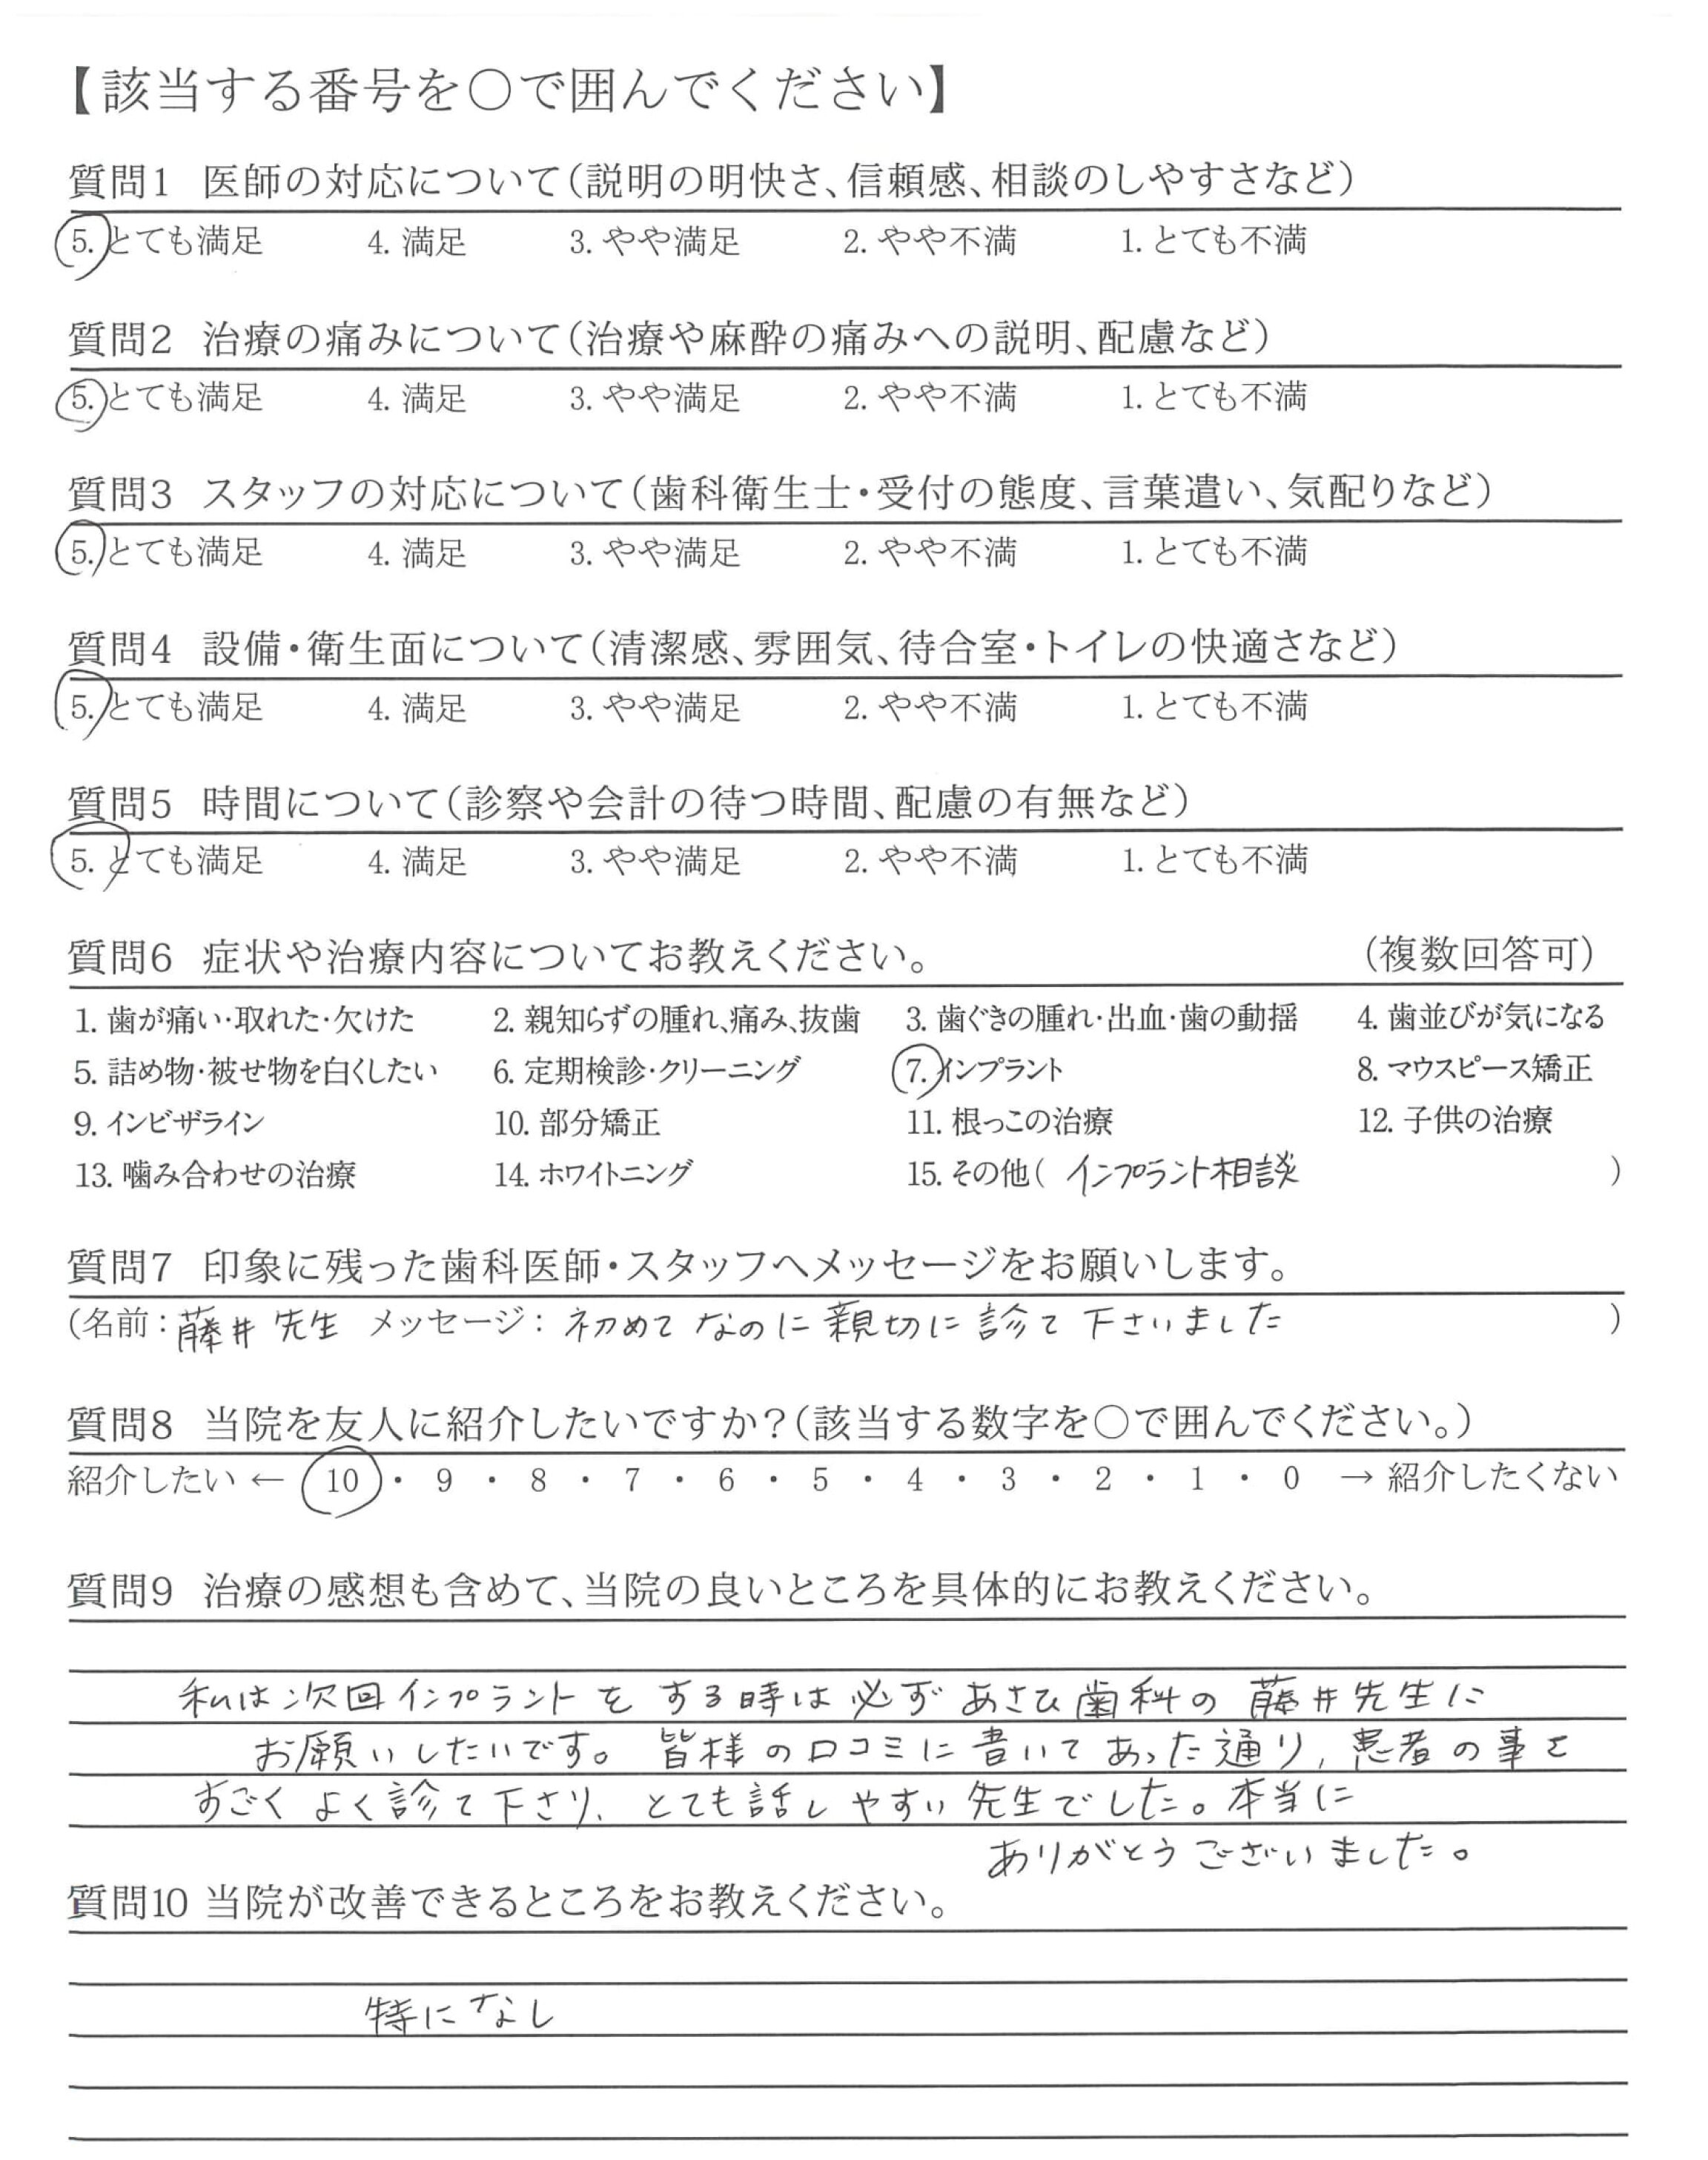 【該当する番号を〇で囲んでください】
質問1 医師の対応について(説明の明快さ、信頼感、相談のしやすさなど)
5. とても満足 4. 満足 3. やや満足 2. やや不満 1. とても不満
質問2 治療の痛みについて(治療や麻酔の痛みへの説明、配慮など)
5. とても満足 4. 満足 3. やや満足 2. やや不満 1. とても不満
質問3 スタッフの対応について(歯科衛生士・受付の態度、言葉遣い、気配りなど)
5. とても満足 4. 満足 3. やや満足 2. やや不満 1. とても不満
質問4 設備・衛生面について(清潔感、雰囲気、待合室・トイレの快適さなど)
5. とても満足 4. 満足 3. やや満足 2. やや不満 1. とても不満
質問5 時間について(診察や会計の待つ時間、配慮の有無など)
5. とても満足 4. 満足 3. やや満足 2. やや不満 1. とても不満
質問6 症状や治療内容についてお教えください。 (複数回答可)
1. 歯が痛い・取れた・欠けた 2. 親知らずの腫れ、痛み、抜歯 3. 歯ぐきの腫れ・出血・歯の動揺 4. 歯並びが気になる
5. 詰め物・被せ物を白くしたい 6. 定期検診・クリーニング 7. インプラント 8. マウスピース矯正
9. インビザライン 10. 部分矯正 11. 根っこの治療 12. 子供の治療
13. 噛み合わせの治療 14. ホワイトニング 15. その他( インプラント相談 )
質問7 印象に残った歯科医師・スタッフへメッセージをお願いします。
(名前:藤井 先生 メッセージ: 初めて なのに 親切に 診て 下さいました )
質問8 当院を友人に紹介したいですか?(該当する数字を〇で囲んでください。)
紹介したい ← 10 ・ 9 ・ 8 ・ 7 ・ 6 ・ 5 ・ 4 ・ 3 ・ 2 ・ 1 ・ 0 → 紹介したくない
質問9 治療の感想も含めて、当院の良いところを具体的にお教えください。
私は次回インプラントを する時は 必ず あさひ歯科の 藤井先生に
お願いしたいです。 皆様の口コミに 書いて あった通り、患者の事を
すごく よく診て 下さり、とても話し やすい 先生でした。本当に
ありがとう ございました。
質問10 当院が改善できるところをお教えください。
特に なし